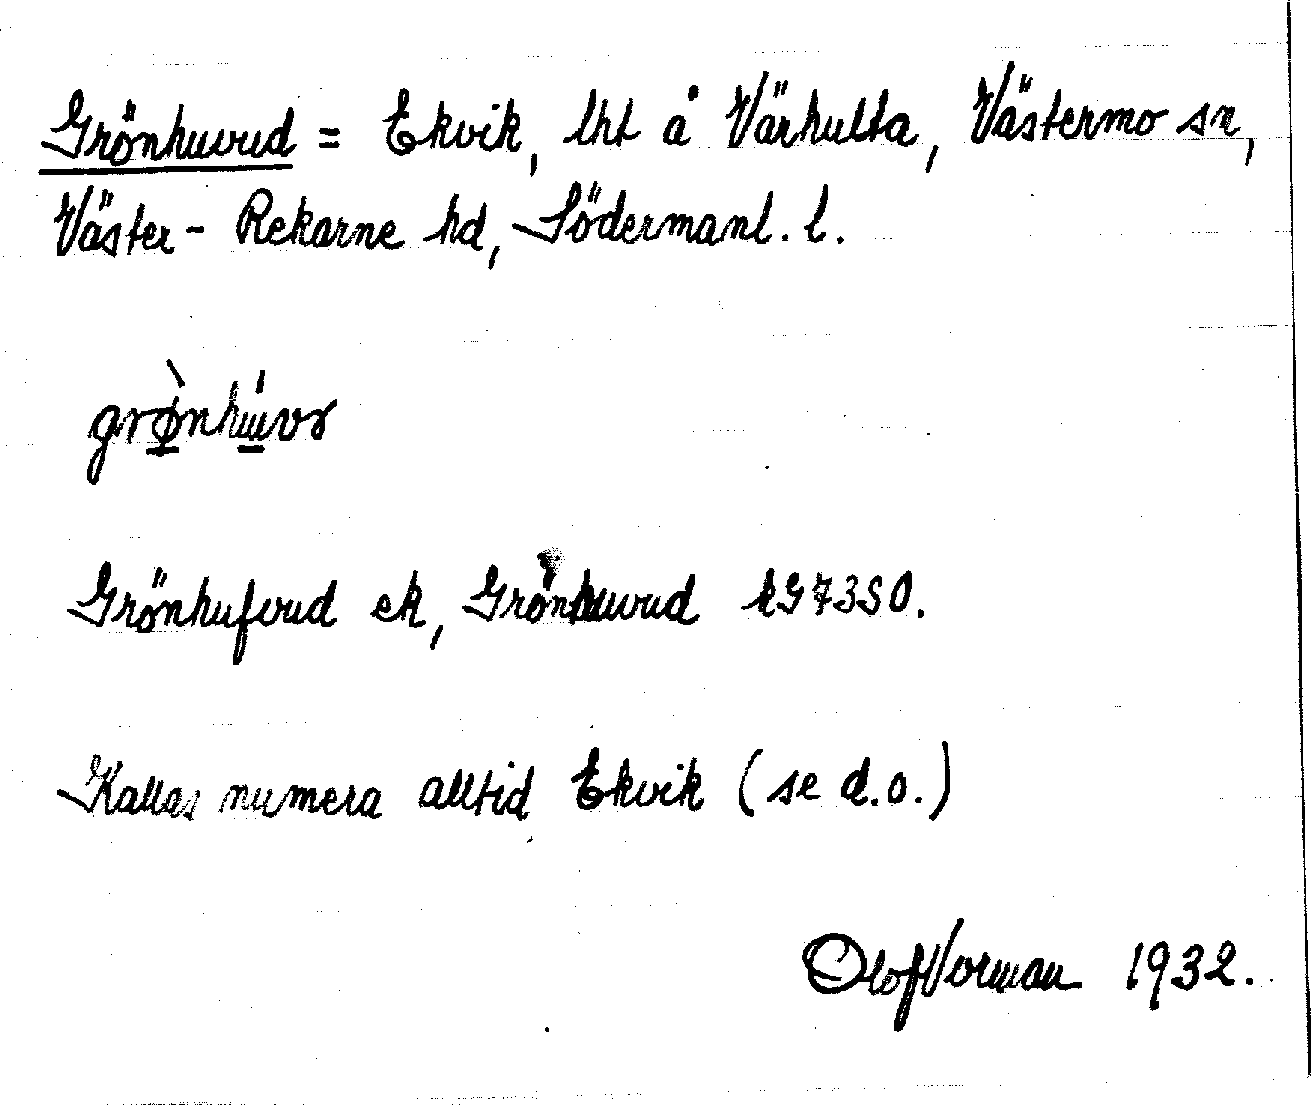 Grönhuvud = Ekvik, lht å Värhulta, Västermo sn,
Väster-Rekarne hd, Södermanl. l.
grø̀nhúvɤ
Grönhufvud ek, Grönhuvud kG7350.
Kallas numera alltid Ekvik (se d.o.)
Olof Norman 1932.